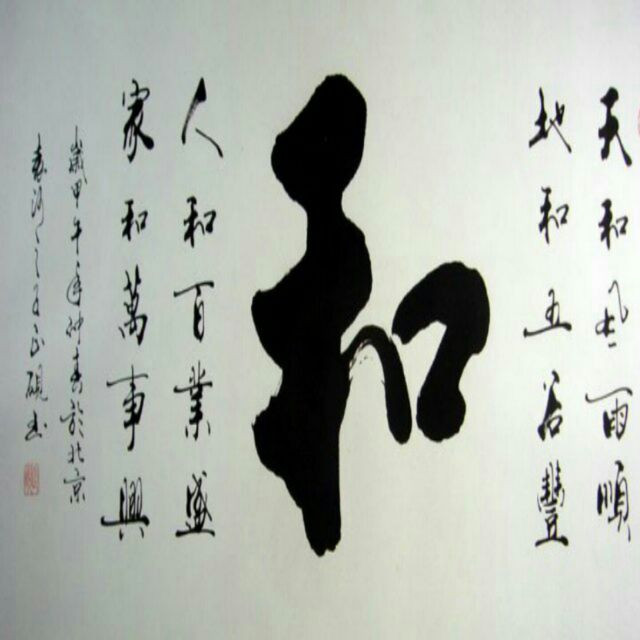 天和風雨順
地和五谷豐
和
人和百業盛
家和萬事興
歲甲午年仲春於北京